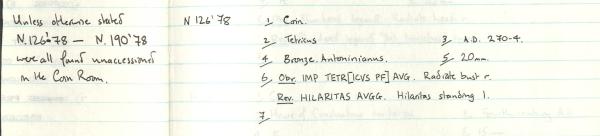 Unless otherwise stated
N.126'78 — N.190'78
were all found unaccessioned
in the Coin Room.
N 126'78
1 Coin.
2 Tetricus
3 A.D. 270-4.
4 Bronze. Antoninianus.
5 20mm.
6 Obv. IMP TETR[ICVS PF] AVG. Radiate bust r.
Rev. HILARITAS AVGG. Hilaritas standing l.
7